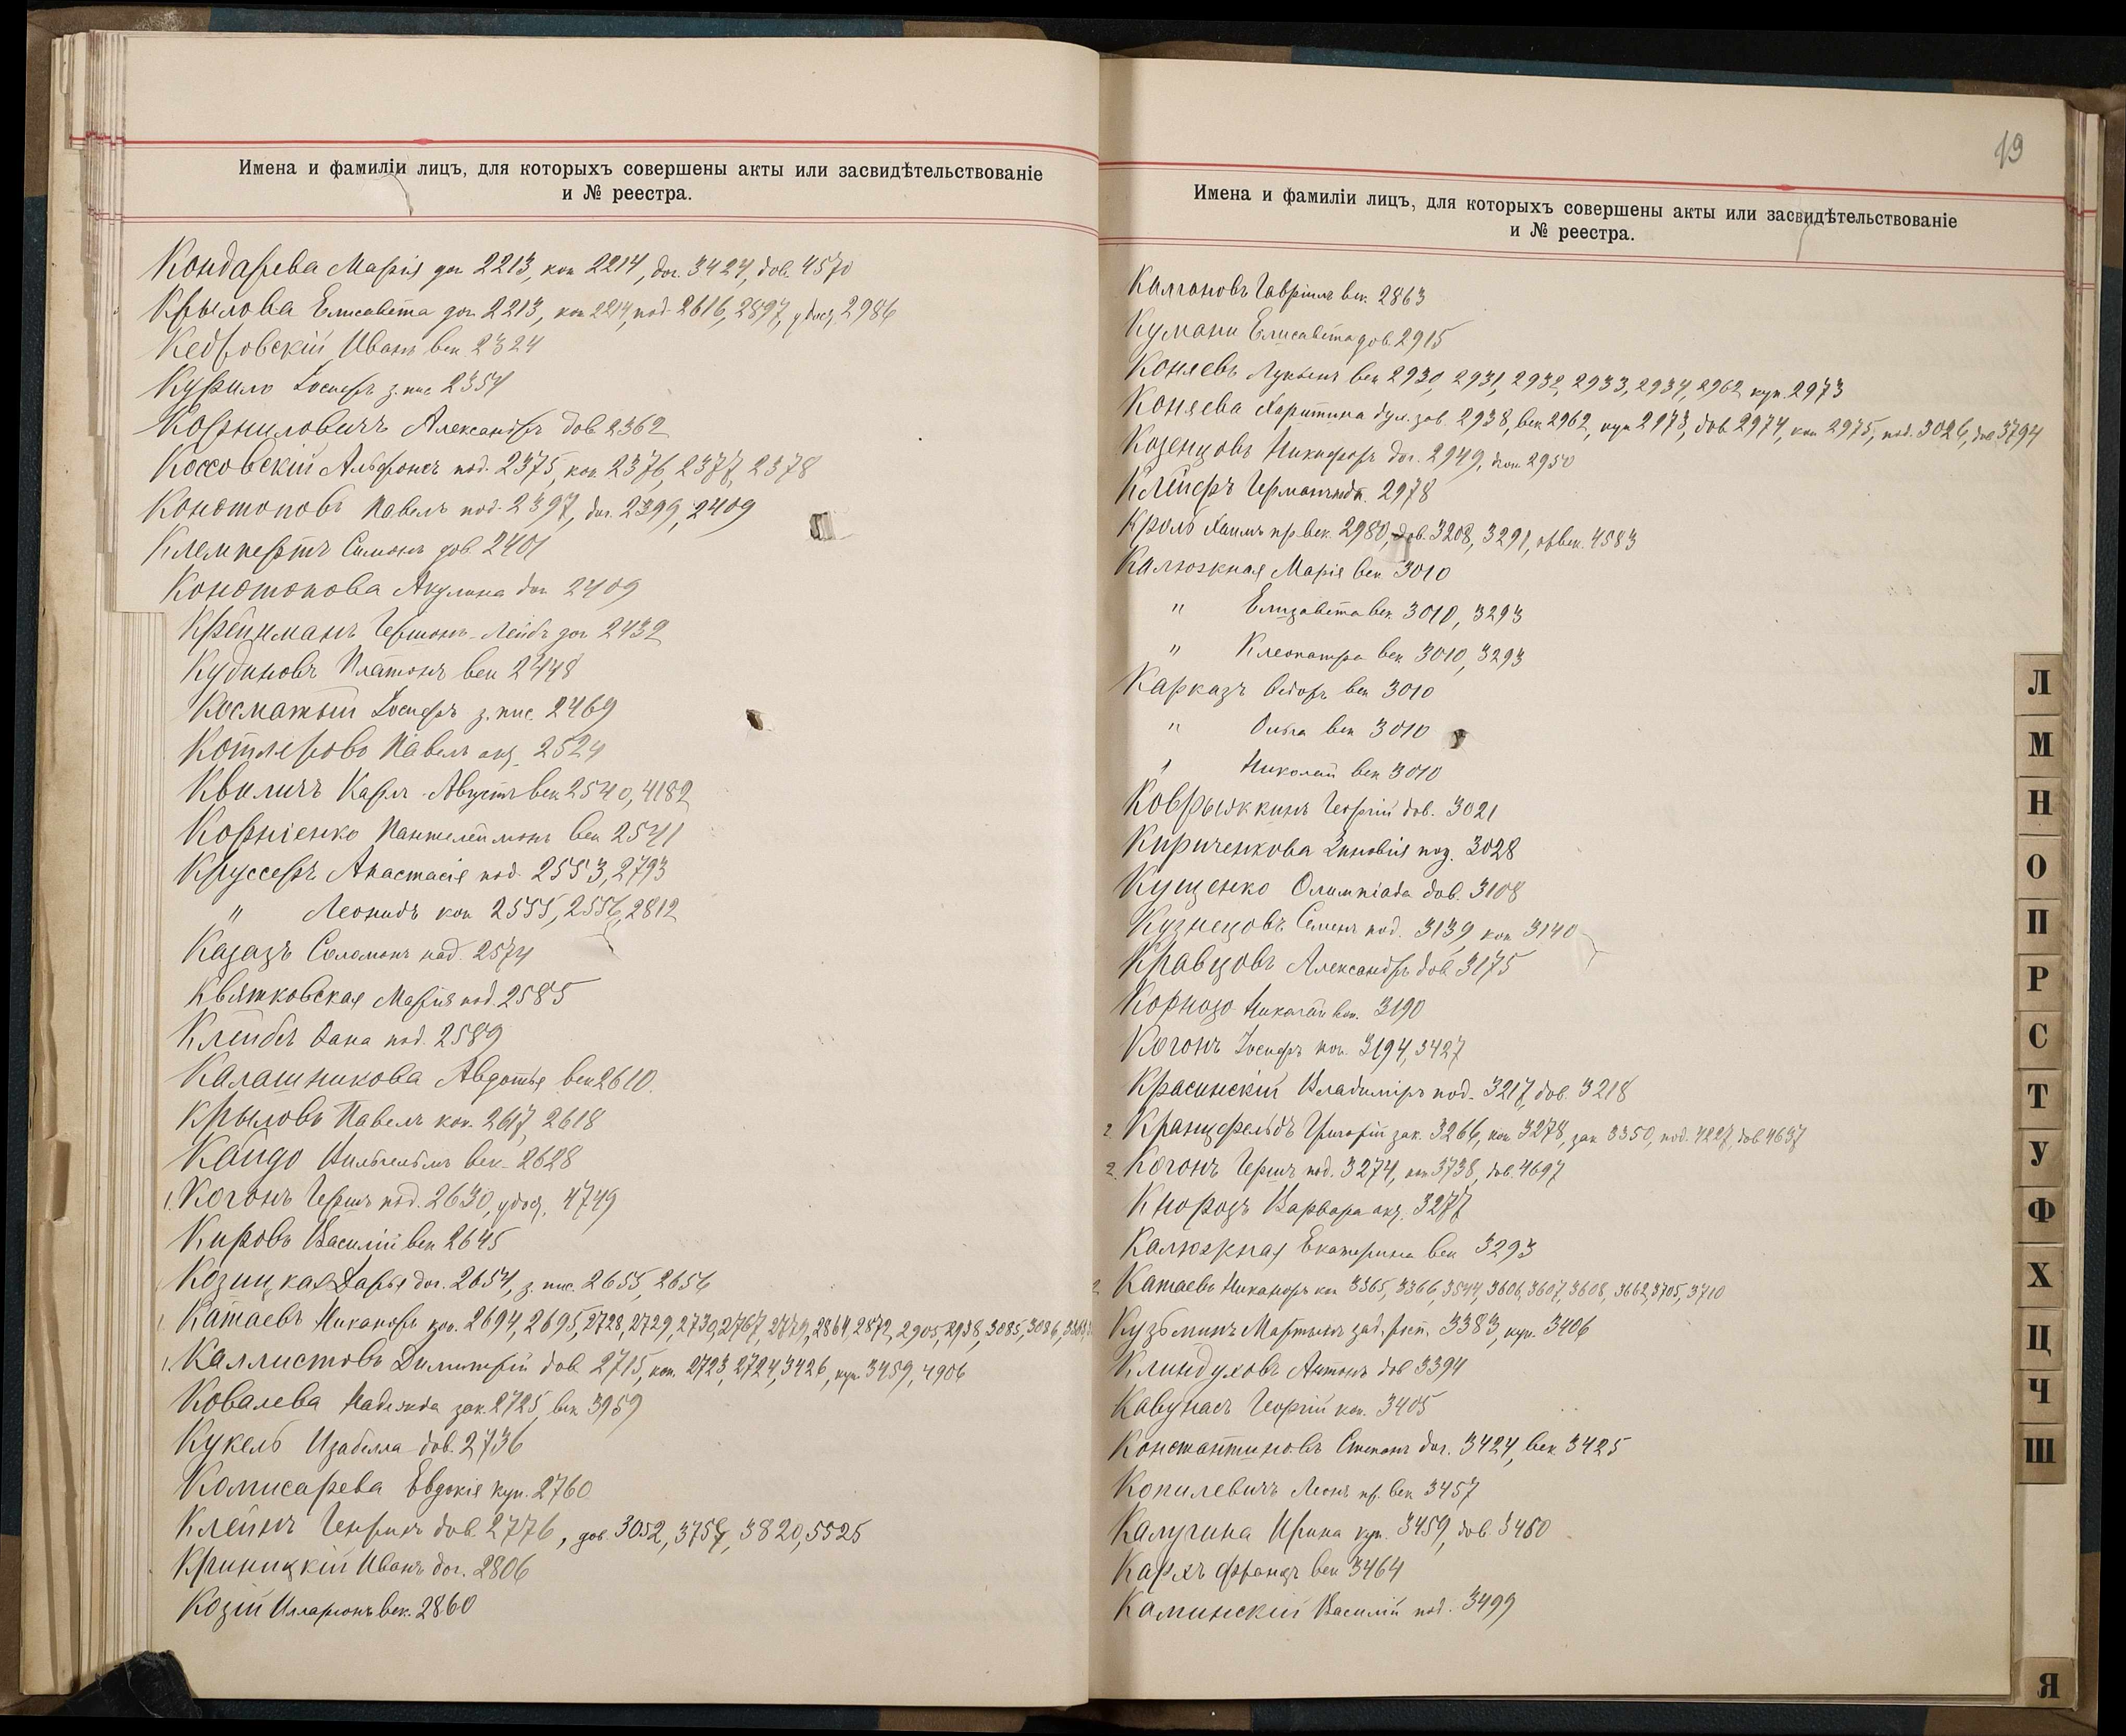 Имена и фамиліи лицъ, для которыхъ совершены акты или засвидѣтельствованіе
и № реестра.
Кондарева Марія дог 2213, коп 2214, дог. 3424, дов. 4570
Крылова Елисавета дог. 2213, коп 2214, под 2616, 2897, удост. 2986
Кедровскій Иванъ век 2324
Курило Іосифъ з. пис 2354
Корниловичъ Александръ дов. 2362
Коссовскій Альфонсъ под. 2375, коп. 2376, 2377, 2378
Конотоповъ Павелъ под. 2397, дог. 2399, 2409
Клемпертъ Симонъ дов. 2401
Конотопова Акулина дог 2409
Крейцманъ Гершонъ-Лейбъ дог 2432
Кудиновъ Платонъ век 2448
Косматый Іосифъ з. пис. 2469
Котлярово Павелъ 2524
Квиличъ Карлъ-Августъ век 2540, 4182
Корніенко Пантелеймонъ век 2541
Круссеръ Анастасія под. 2553, 2793
" Леонидъ коп 2555, 2556, 2812
Казазъ Соломонъ под. 2574
Квятковская Марія под. 2585
Клейбъ под. 2589
Калашникова Авдотья век 2610.
Крыловъ Павелъ коп. 2617, 2618
Кайдо Вильгельмъ век. 2628
1. Когонъ Гершъ под. 2630, удост. 4749
Кировъ Василій век 2645
Козицкая Дарья дог. 2654, з. пис. 2655, 2656
1. Катаевъ Никаноръ коп. 2694, 2695, 2728, 2729, 2730, 2767, 2779, 2864, 2872, 2905, 2938, 3085, 3086,
1. Каллистовъ Димитрій дов. 2715, коп. 2723, 2724, 3426, куп. 3459, 4906
Ковалева Надежда зак. 2725, век 3959
Кукель Изабелла дов. 2736
Комисарева Евдокія куп. 2760
Клейнъ Генрихъ дов. 2776, дов. 3052, 3757, 3820, 5525
Криницкій Иванъ дог. 2806
Козій Илларіонъ век. 2860
19
Имена и фамиліи лицъ, для которыхъ совершены акты или засвидѣтельствованіе
и № реестра.
Калгановъ Гавріилъ век. 2863
Кумани Елисавета дов. 2915
Коняевъ Лукьянъ век 2930, 2931, 2932, 2933, 2934, 2962, куп. 2973
Коняева Харитина дух. зав. 2938, век 2962, куп 2973, дов. 2974, коп 2975, под. 3026, дов 3794
Козенцовъ Никифоръ дог. 2949, 2950
Клейфъ Германъ 2978
Кроль Хаимъ пр. век. 2980, дов. 3208, 3291, пр. век. 4583
Калюжная Марія век 3010
" Елизавета век 3010, 3293
" Клеопатра век 3010, 3293
Карказъ Ѳедоръ век 3010
" Ольга век 3010
" Николай век 3010
Коврыжкинъ Георгій дов. 3021
Кириченкова Зиновія 3028
Кущенко Олимпіада дов. 3108
Кузнецовъ Семенъ под. 3139, коп 3140
Кравцовъ Александръ дов. 3175
Корнозо Николай коп. 3190
Когонъ Іосифъ коп. 3194, 3427
Красинскій Владиміръ под. 3217, дов. 3218
2 Кранцфельдъ Григорій зак. 3266, коп 3278, зак 3350, под. 4227, дов. 4637
2. Когонъ Гершъ под. 3274, коп 3738, дов. 4697
Кнорозъ Варвара 3277
Калюжная Екатерина век 3293
2 Катаевъ Никаноръ коп 3365, 3366, 3544, 3606, 3607, 3608, 3662, 3705, 3710
Кузьминъ Мартынъ зад. росп. 3383, куп. 3406
Клиндуховъ Антонъ дов 3394
Кавунасъ Георгій коп. 3405
Константиновъ Степанъ дог. 3424, век 3425
Копилевичъ Леонъ пр. век 3457
Калугина Ирина куп. 3459, дов. 3460
Кархъ Францъ век 3464
Каминскій Василій под. 3499
Л
М
Н
О
П
Р
С
Т
У
Ф
Х
Ц
Ч
Ш
Я